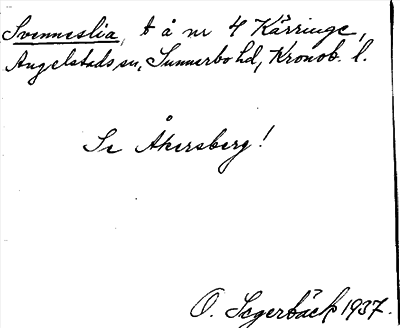 Svenneslia, t å nr 4 Kärringe,
Angelstads sn, Sunnerbo hd, Kronob. l.
Se Åkersberg!
O. Segerbäck 1937.